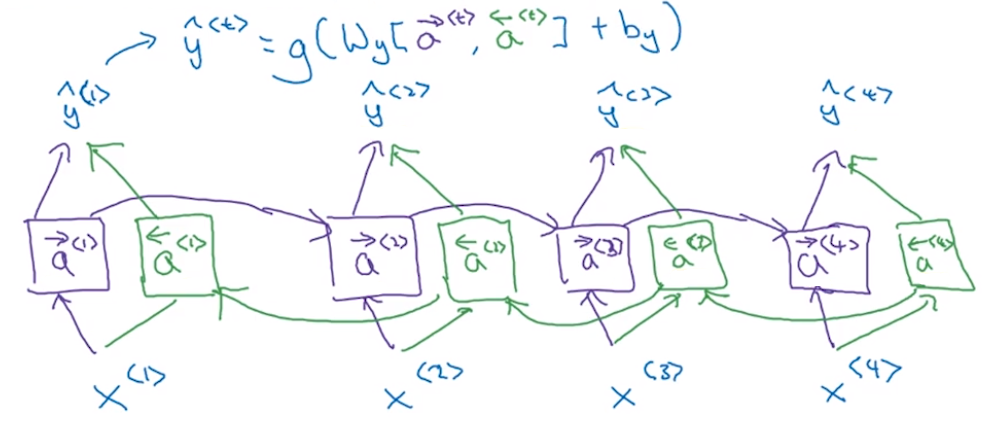 ŷ^<t> = g(W_y[→a^<t>, ←a^<t>] + b_y)
ŷ^<1> ŷ^<2> ŷ^<3> ŷ^<4>
→a^<1> ←a^<1> →a^<2> ←a^<2> →a^<3> ←a^<3> →a^<4> ←a^<4>
x^<1> x^<2> x^<3> x^<4>